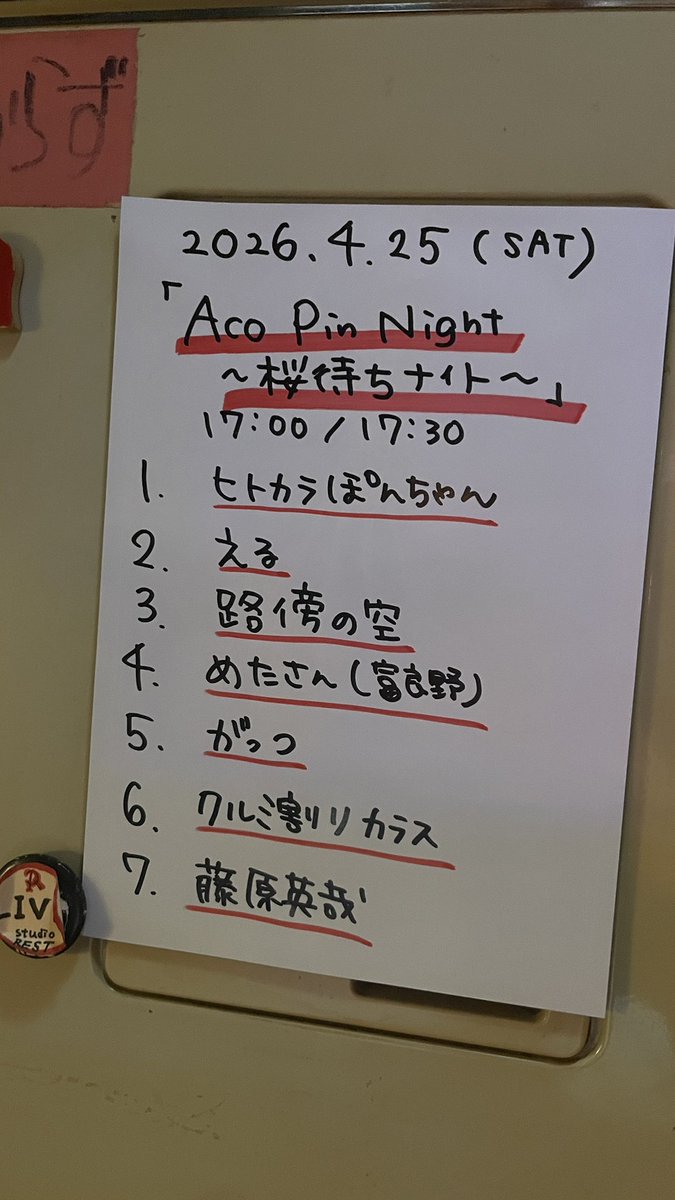 らず
2026.4.25 (SAT)
「Aco Pin Night
～桜待ちナイト～」
17:00 / 17:30
1. ヒトカラぽんちゃん
2. える
3. 路傍の空
4. めたさん(富良野)
5. がっつ
6. クルミ割りカラス
7. 藤原英哉
R
LIV
studio
REST